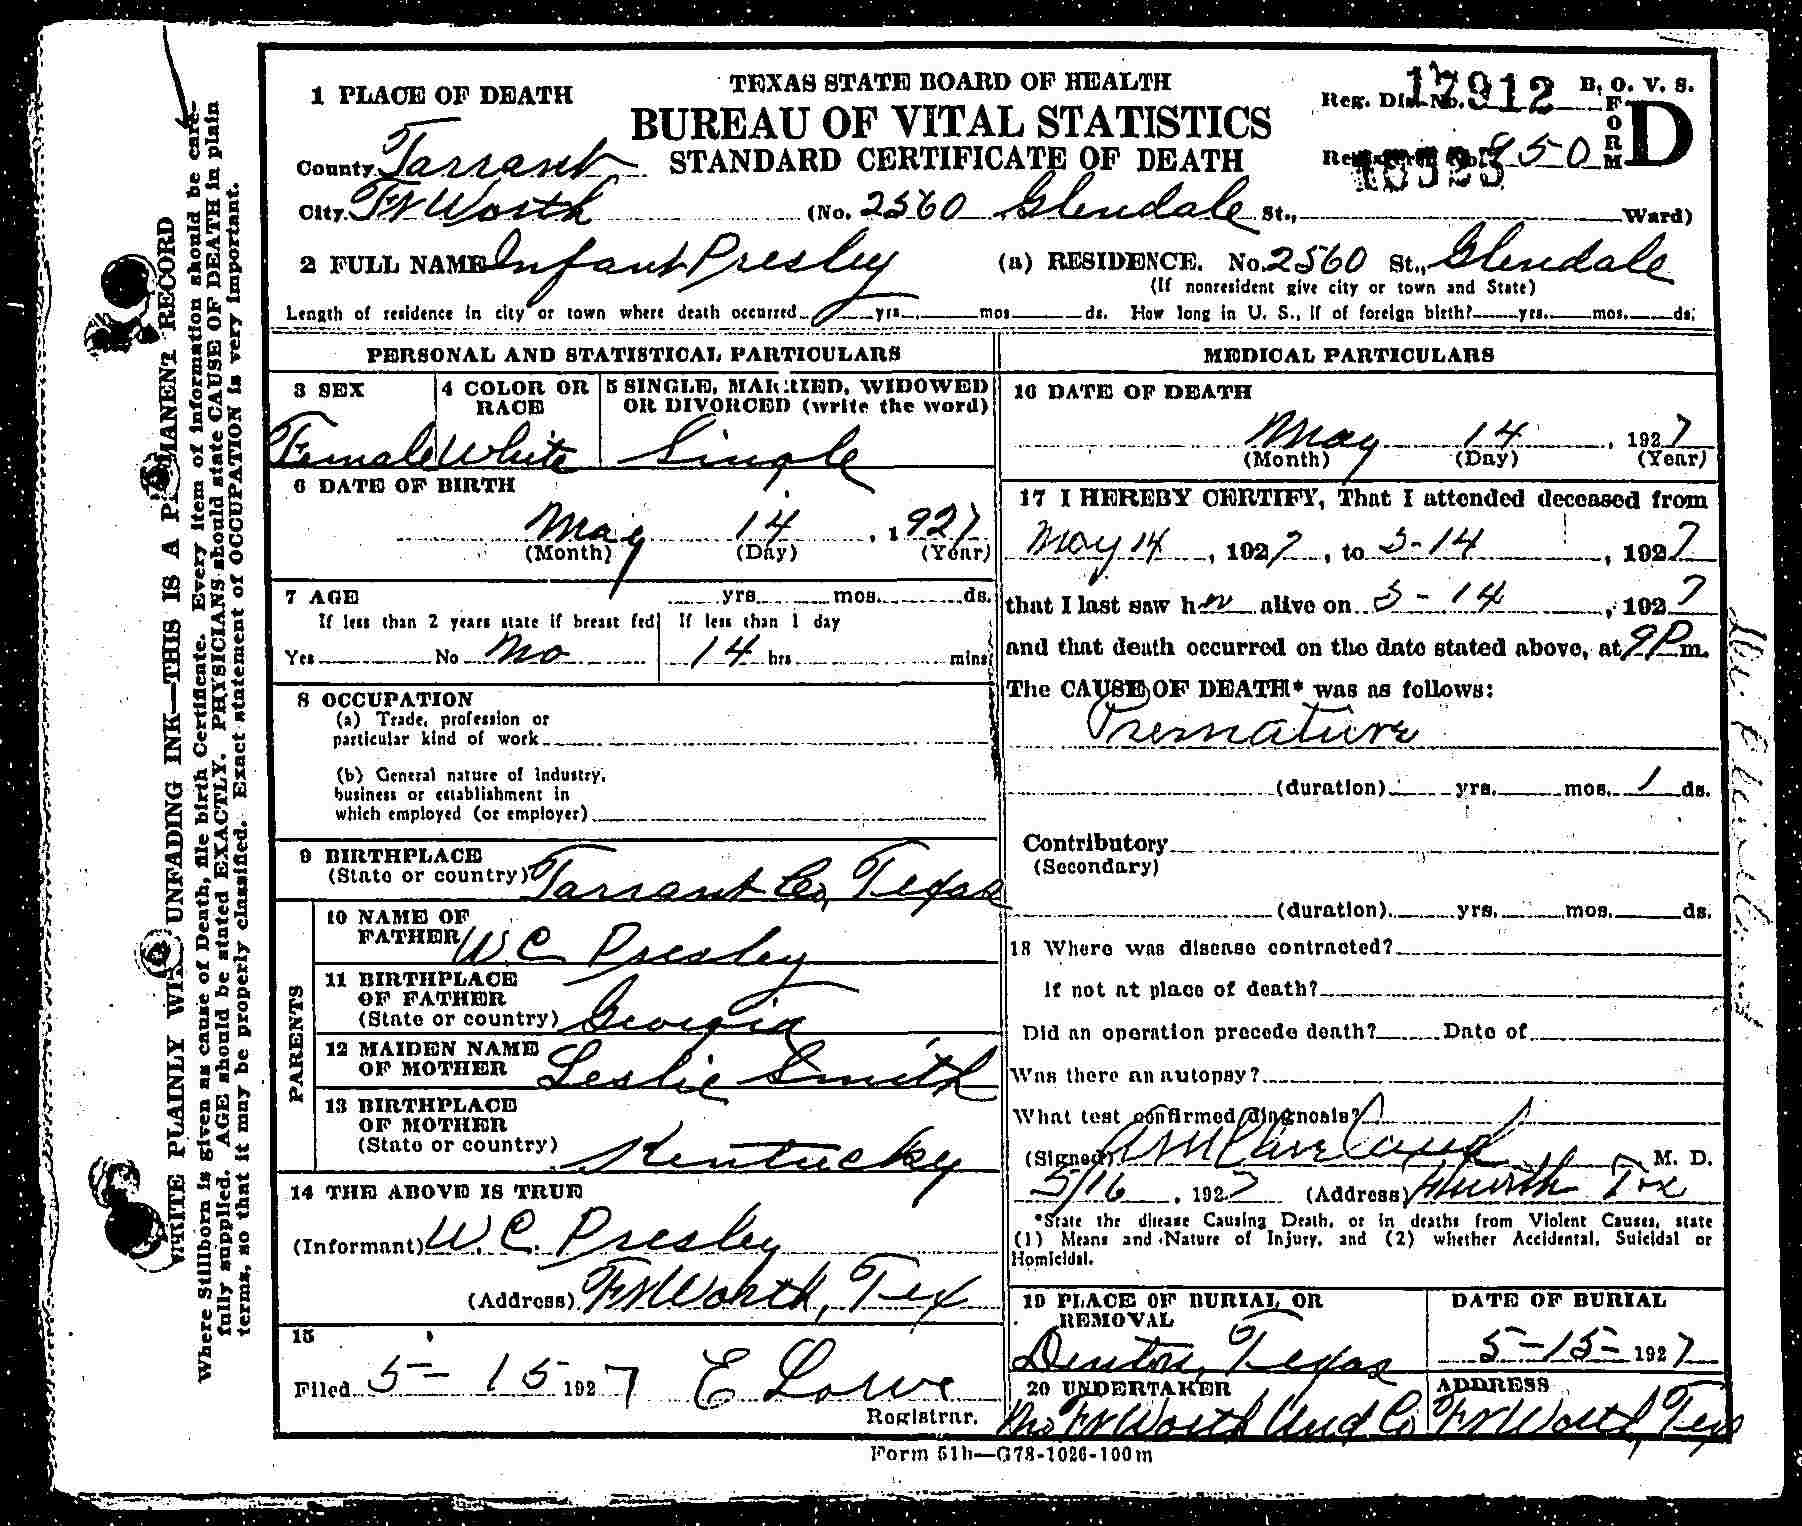 TEXAS STATE BOARD OF HEALTH
BUREAU OF VITAL STATISTICS
STANDARD CERTIFICATE OF DEATH
17912 B. O. V. S.
Reg. Dis. No.
FORM D
950
1 PLACE OF DEATH
County Tarrant
City Ft Worth (No. 2560 Glendale St., Ward)
2 FULL NAME Infant Presley (a) RESIDENCE. No. 2560 St., Glendale
(If nonresident give city or town and State)
Length of residence in city or town where death occurred yrs. mos. ds. How long in U. S., if of foreign birth? yrs. mos. ds.
PERSONAL AND STATISTICAL PARTICULARS
3 SEX 4 COLOR OR RACE 5 SINGLE, MARRIED, WIDOWED OR DIVORCED (write the word)
Female White Single
6 DATE OF BIRTH
May 14, 1927
(Month) (Day) (Year)
7 AGE yrs. mos. ds.
If less than 2 years state if breast fed If less than 1 day
Yes No No 14 hrs mins
8 OCCUPATION
(a) Trade, profession or
particular kind of work
(b) General nature of Industry,
business or establishment in
which employed (or employer)
9 BIRTHPLACE
(State or country) Tarrant Co, Texas
PARENTS
10 NAME OF
FATHER W C Presley
11 BIRTHPLACE
OF FATHER
(State or country) Georgia
12 MAIDEN NAME
OF MOTHER Leslie Smith
13 BIRTHPLACE
OF MOTHER
(State or country) Kentucky
14 THE ABOVE IS TRUE
(Informant) W. C. Presley
(Address) Ft Worth, Tex
15
Filed 5-15 1927 E Lowe
Registrar.
MEDICAL PARTICULARS
16 DATE OF DEATH
May 14, 1927
(Month) (Day) (Year)
17 I HEREBY CERTIFY, That I attended deceased from
May 14, 1927, to 5-14, 1927
that I last saw her alive on 5-14, 1927
and that death occurred on the date stated above, at 9 P m.
The CAUSE OF DEATH* was as follows:
Premature
(duration) yrs. mos. 1 ds.
Contributory
(Secondary)
(duration) yrs. mos. ds.
18 Where was disease contracted?
If not at place of death?
Did an operation precede death? Date of
Was there an autopsy?
What test confirmed diagnosis?
(Signed) M. D.
5/16, 1927 (Address) Ftworth Tex
*State the disease Causing Death, or in deaths from Violent Causes, state
(1) Means and Nature of Injury, and (2) whether Accidental, Suicidal or
Homicidal.
19 PLACE OF BURIAL OR REMOVAL DATE OF BURIAL
Denton, Texas 5-15-1927
20 UNDERTAKER ADDRESS
Ft Worth Und Co Ft Worth, Tex
Form 51h—G78-1026-100m
WRITE PLAINLY WITH UNFADING INK—THIS IS A PERMANENT RECORD
Where Stillborn is given as cause of Death, file birth Certificate. Every item of information should be care-
fully supplied. AGE should be stated EXACTLY. PHYSICIANS should state CAUSE OF DEATH in plain
terms, so that it may be properly classified. Exact statement of OCCUPATION is very important.